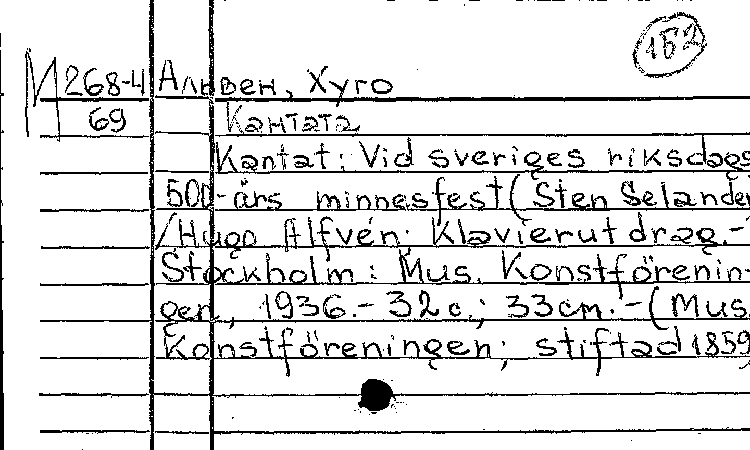 152
М 268-4 Альвен, Хуго
69 Кантата
Kantat: Vid sveriges riksdags
500-års minnesfest (Sten Selander
/Hugo Alfvén; Klavierutdrag.-
Stockholm: Mus. Konstförenin-
gen, 1936.- 32 с.; 33cm.-(Mus.
Konstföreningen; stiftad 1859